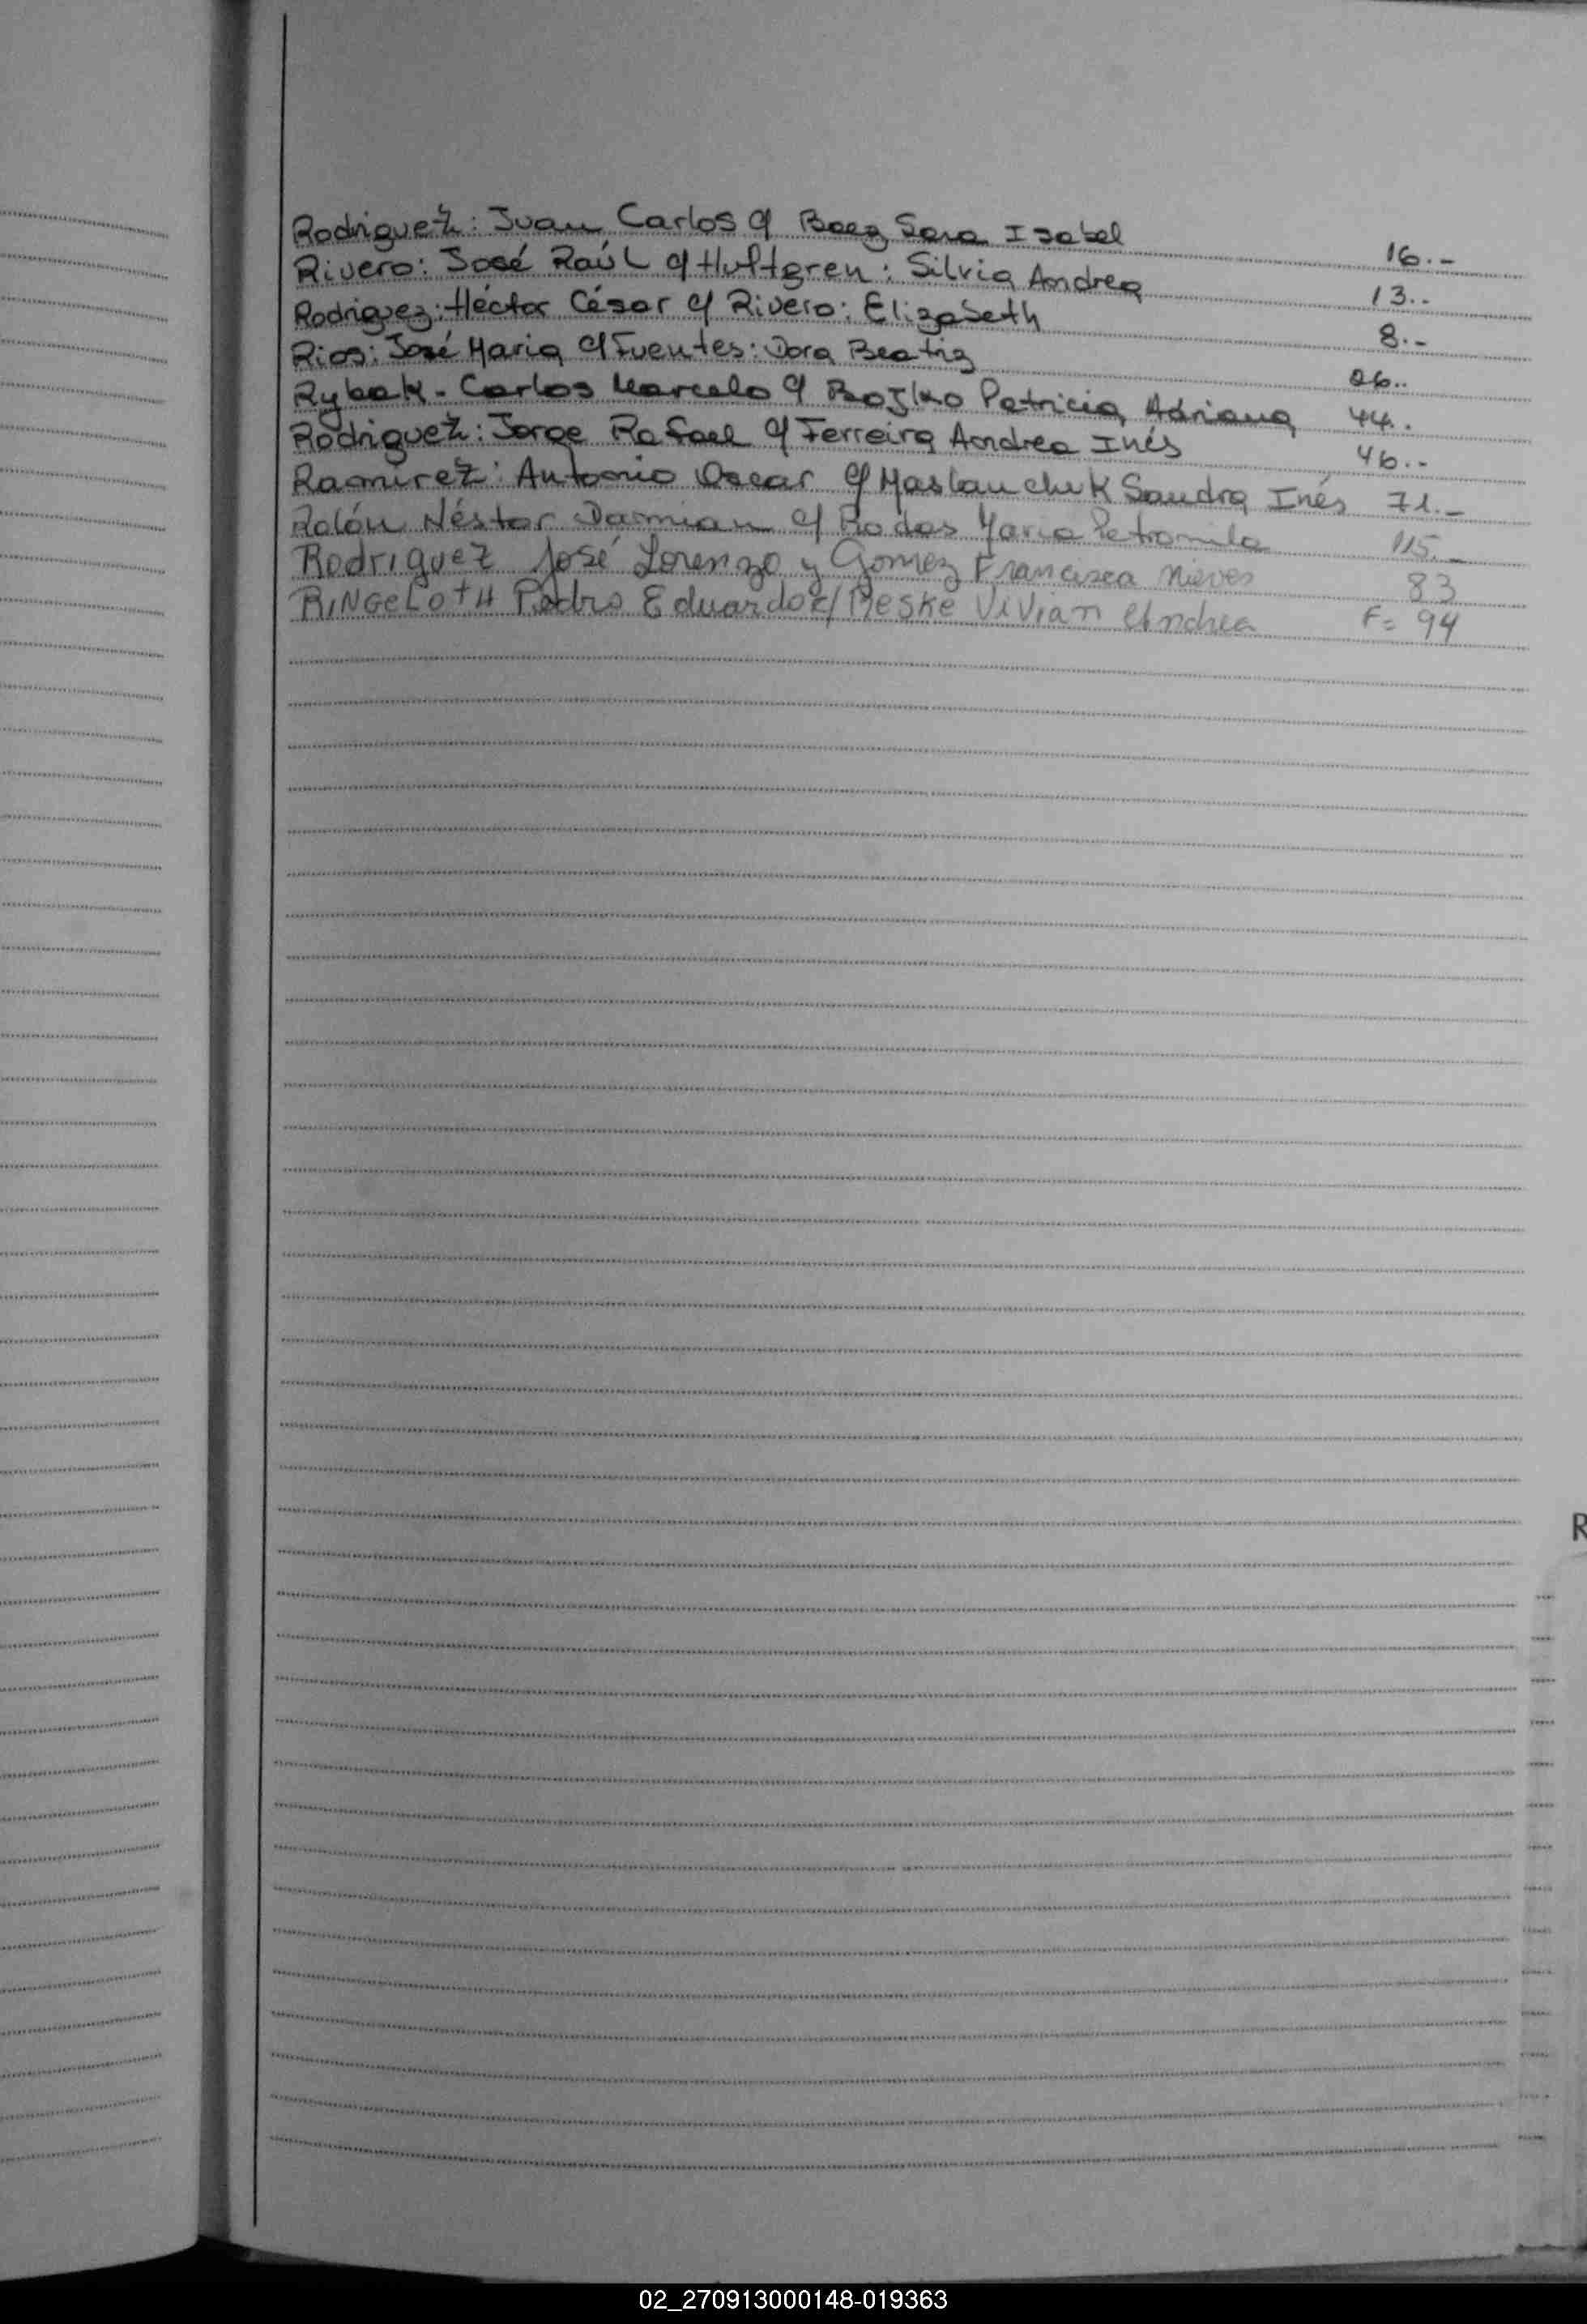 Rodriguez: Juan Carlos c/ Baez Sara Isabel 16.-
Rivero: José Raúl c/ Hultgren: Silvia Andrea 13..
Rodriguez: Héctor César c/ Rivero: Elizabeth 8.-
Rios: José Maria c/ Fuentes: Dora Beatriz 26..
Rybak - Carlos Marcelo c/ Bojko Patricia Adriana 44..
Rodriguez: Jorge Rafael c/ Ferreira Andrea Inés 46.-
Ramirez: Antonio Oscar c/ Maslanchuk Sandra Inés 71.-
Rolón Néstor Damian c/ Rodas Maria Petronila 115.-
Rodriguez José Lorenzo y Gomez Francisca Nieves 83
RINGeLotH Pedro Eduardo c/ Peske Vivian Andrea F= 94
R
02_270913000148-019363